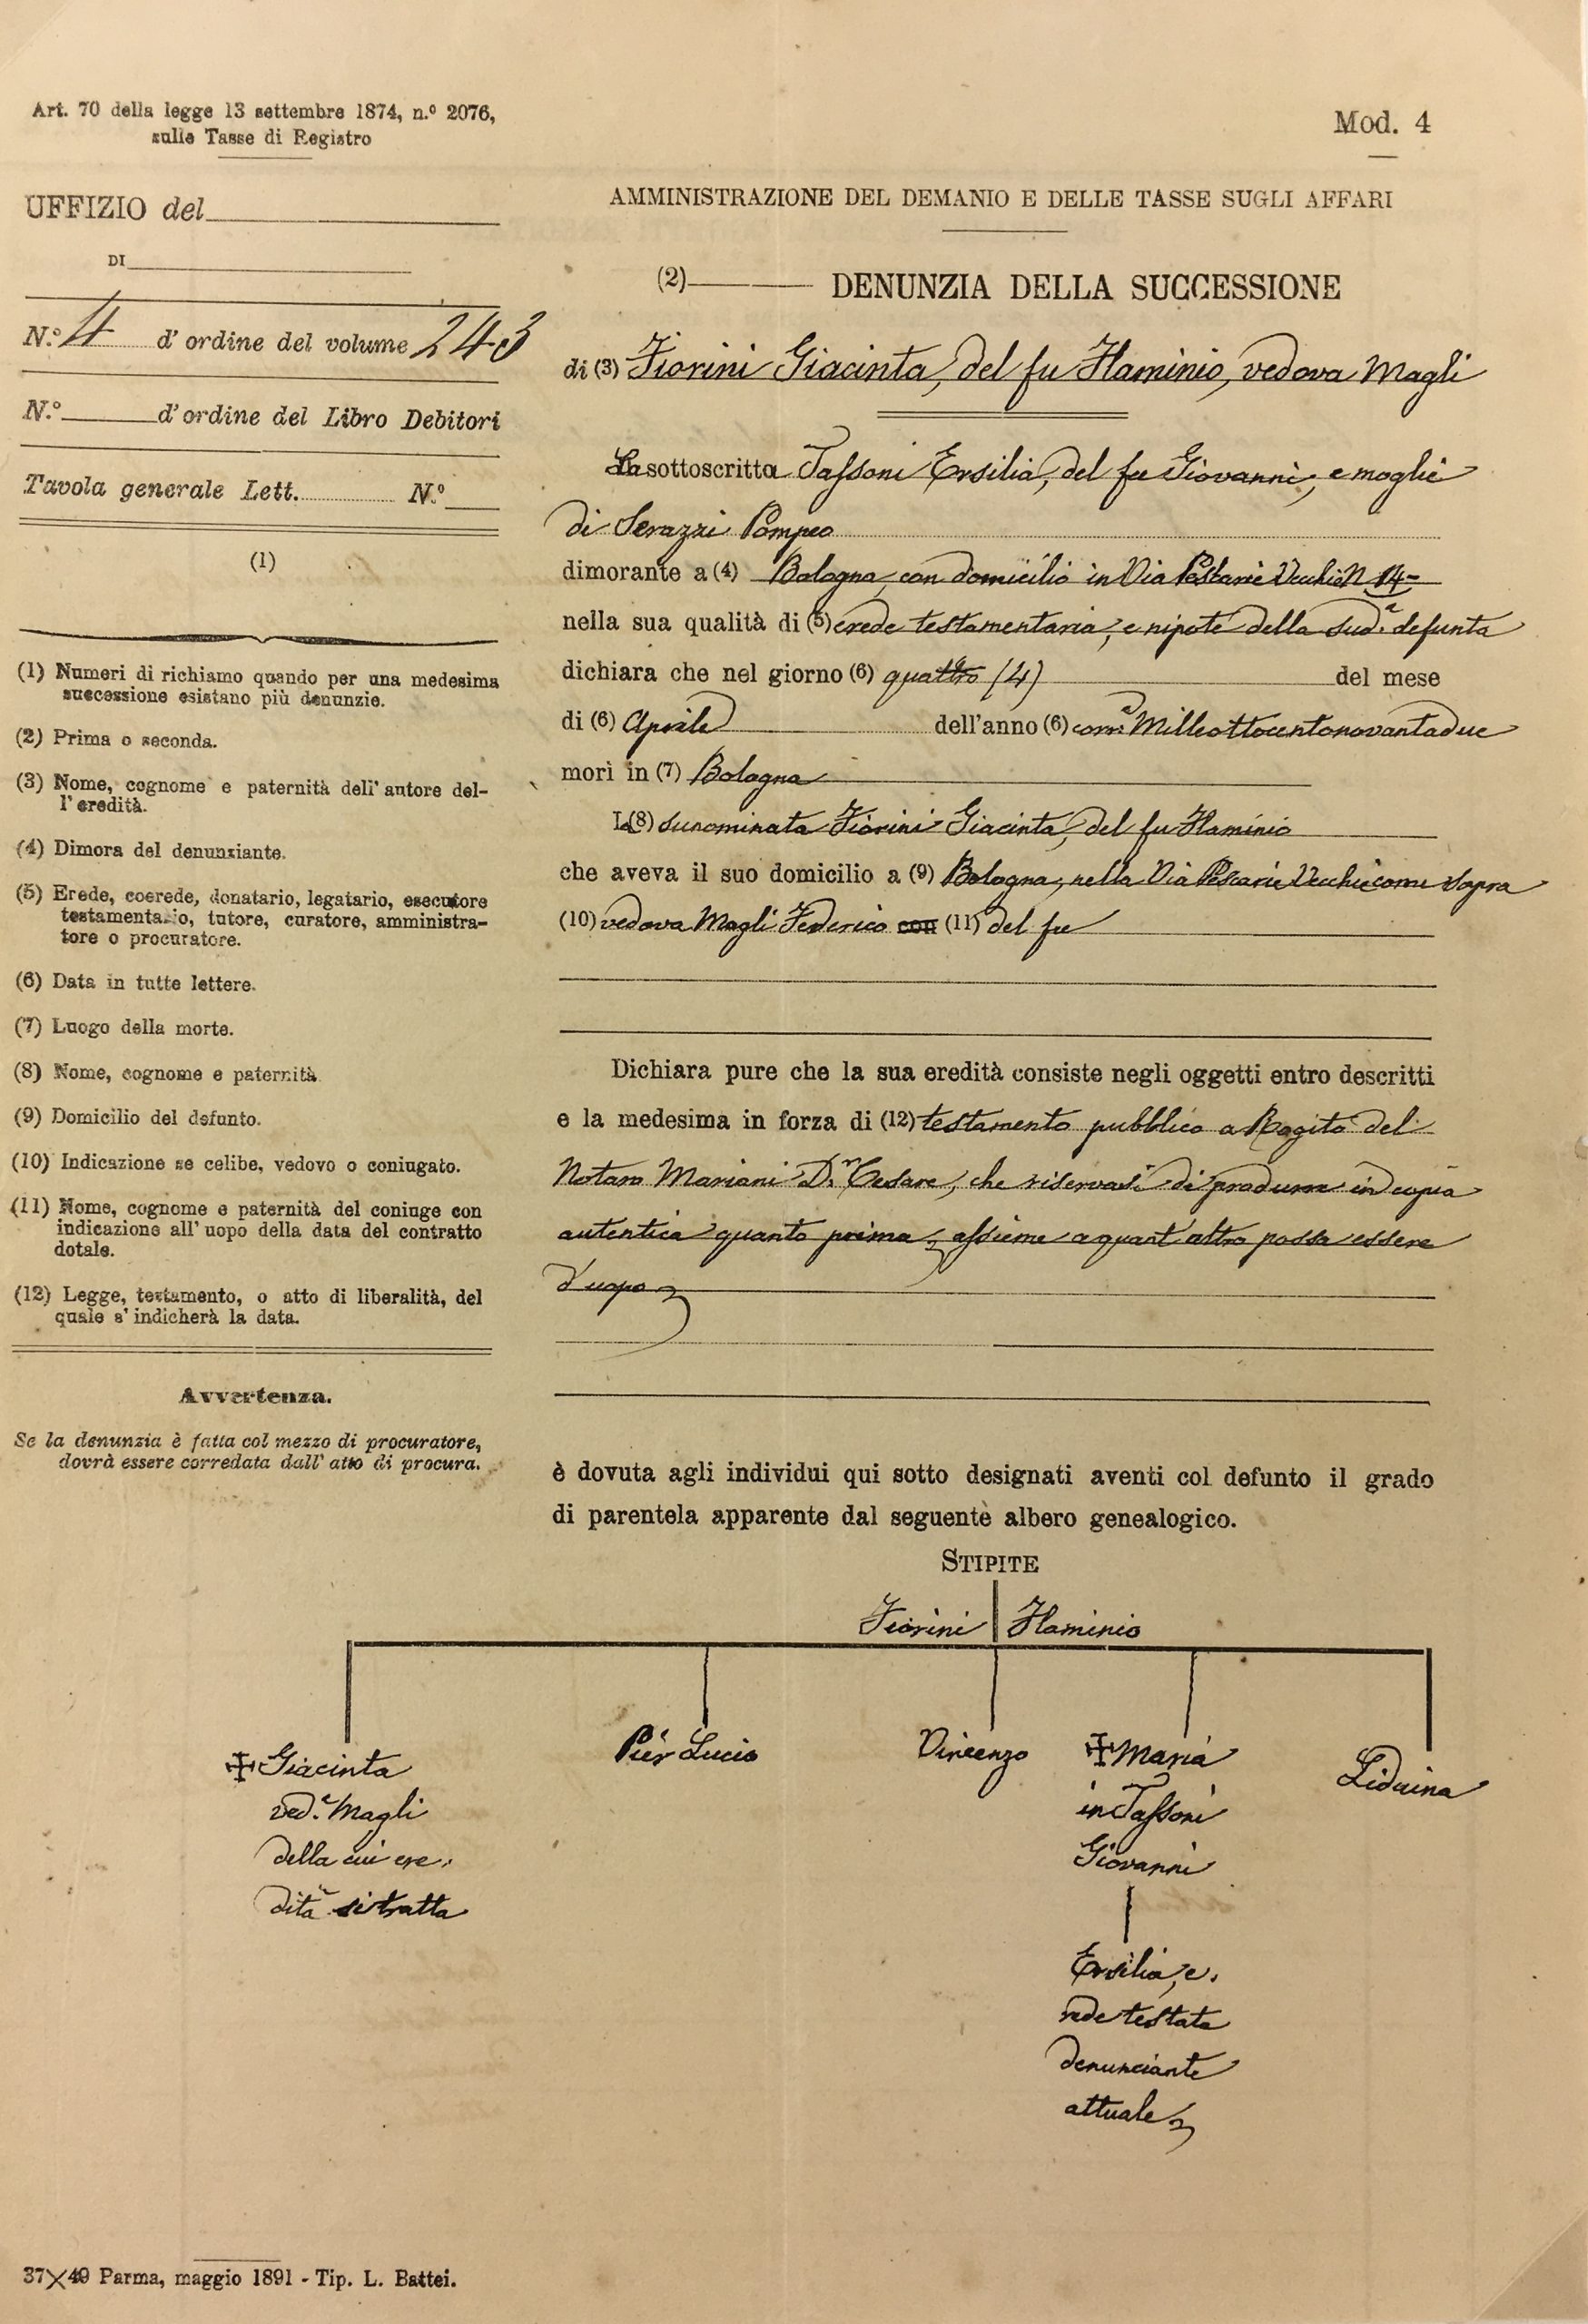 Art. 70 della legge 13 settembre 1874, n.º 2076,
sulle Tasse di Registro
Mod. 4
UFFIZIO del
DI
N.º 4 d'ordine del volume 243
N.º d'ordine del Libro Debitori
Tavola generale Lett. N.º
(1)
(1) Numeri di richiamo quando per una medesima
successione esistano più denunzie.
(2) Prima o seconda.
(3) Nome, cognome e paternità dell'autore del-
l'eredità.
(4) Dimora del denunziante.
(5) Erede, coerede, donatario, legatario, esecutore
testamentario, tutore, curatore, amministra-
tore o procuratore.
(6) Data in tutte lettere.
(7) Luogo della morte.
(8) Nome, cognome e paternità
(9) Domicilio del defunto.
(10) Indicazione se celibe, vedovo o coniugato.
(11) Nome, cognome e paternità del coniuge con
indicazione all'uopo della data del contratto
dotale.
(12) Legge, testamento, o atto di liberalità, del
quale s'indicherà la data.
Avvertenza.
Se la denunzia è fatta col mezzo di procuratore,
dovrà essere corredata dall'atto di procura.
AMMINISTRAZIONE DEL DEMANIO E DELLE TASSE SUGLI AFFARI
(2) DENUNZIA DELLA SUCCESSIONE
di (3) Fiorini Giacinta, del fu Flaminio, vedova Magli
La sottoscritta Tassoni Ersilia, del fu Giovanni, e moglie
di Serazzi Pompeo
dimorante a (4) Bologna, con domicilio in Via Pescarie Vecchie N 14-
nella sua qualità di (5) erede testamentaria, e nipote della sud.a defunta
dichiara che nel giorno (6) quattro (4) del mese
di (6) Aprile dell'anno (6) corr.e Milleottocentonovantadue
morì in (7) Bologna
La (8) sunominata Fiorini Giacinta, del fu Flaminio
che aveva il suo domicilio a (9) Bologna, nella Via Pescarie Vecchie come sopra
(10) vedova Magli Federico con (11) del fu
Dichiara pure che la sua eredità consiste negli oggetti entro descritti
e la medesima in forza di (12) testamento pubblico a Rogito del
Notaro Mariani D.r Cesare, che riservasi di produrre in copia
autentica quanto prima, assieme a quant'altro possa essere
d'uopo
è dovuta agli individui qui sotto designati aventi col defunto il grado
di parentela apparente dal seguente albero genealogico.
STIPITE
Fiorini Flaminio
Giacinta
ved.a Magli
della cui ere-
dità si tratta
Pier Lucio
Vincenzo
Maria
in Tassoni
Giovanni
Ersilia, e-
rede testata
denunciante
attuale
Liduina
37×49 Parma, maggio 1891 - Tip. L. Battei.